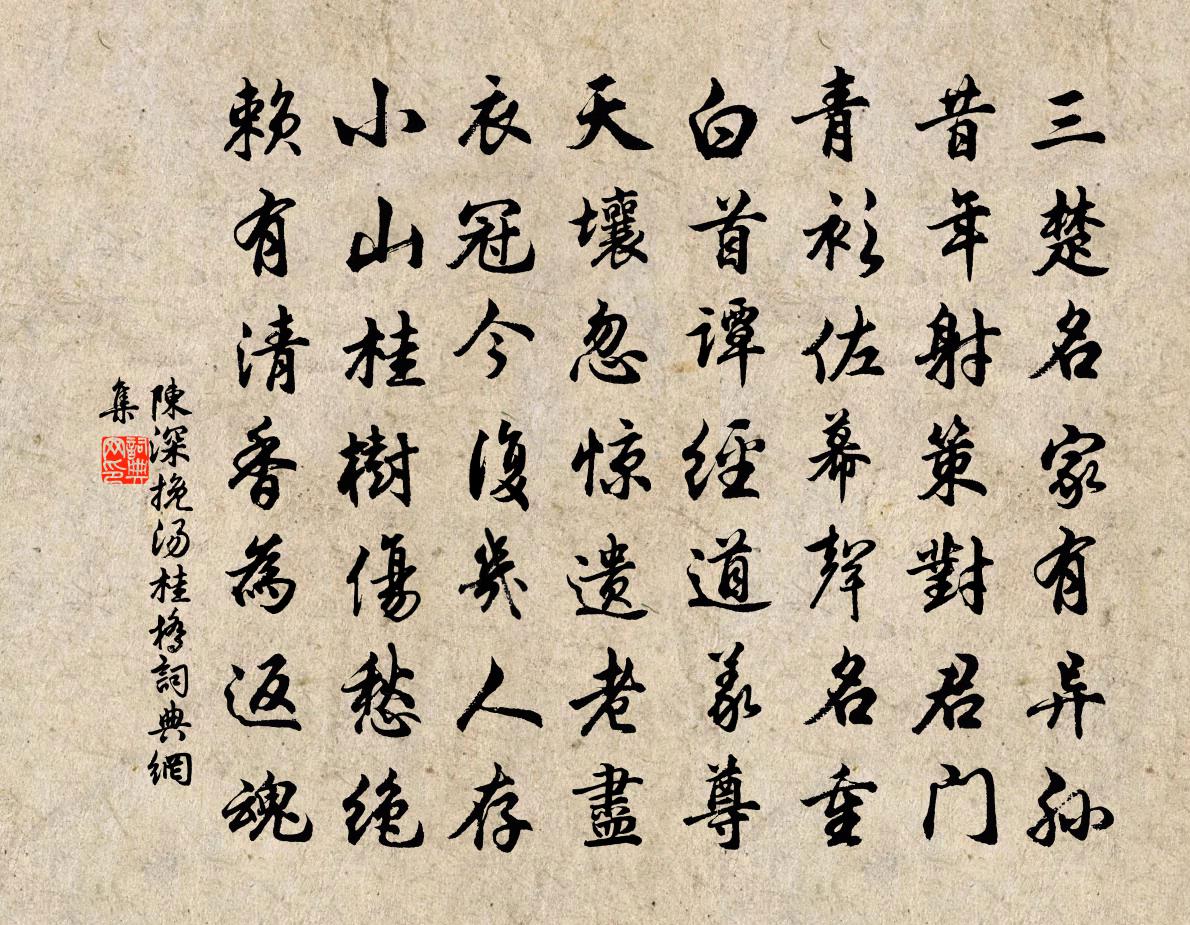 三楚名家有异孙
昔年射策對君门
青衫佐幕聲名重
白首谭經道義尊
天壤忽惊遗老盡
衣冠今復幾人存
小山桂樹傷愁绝
赖有清香為返魂
陳深挽汤桂橋詞典網
集
詞典
网印